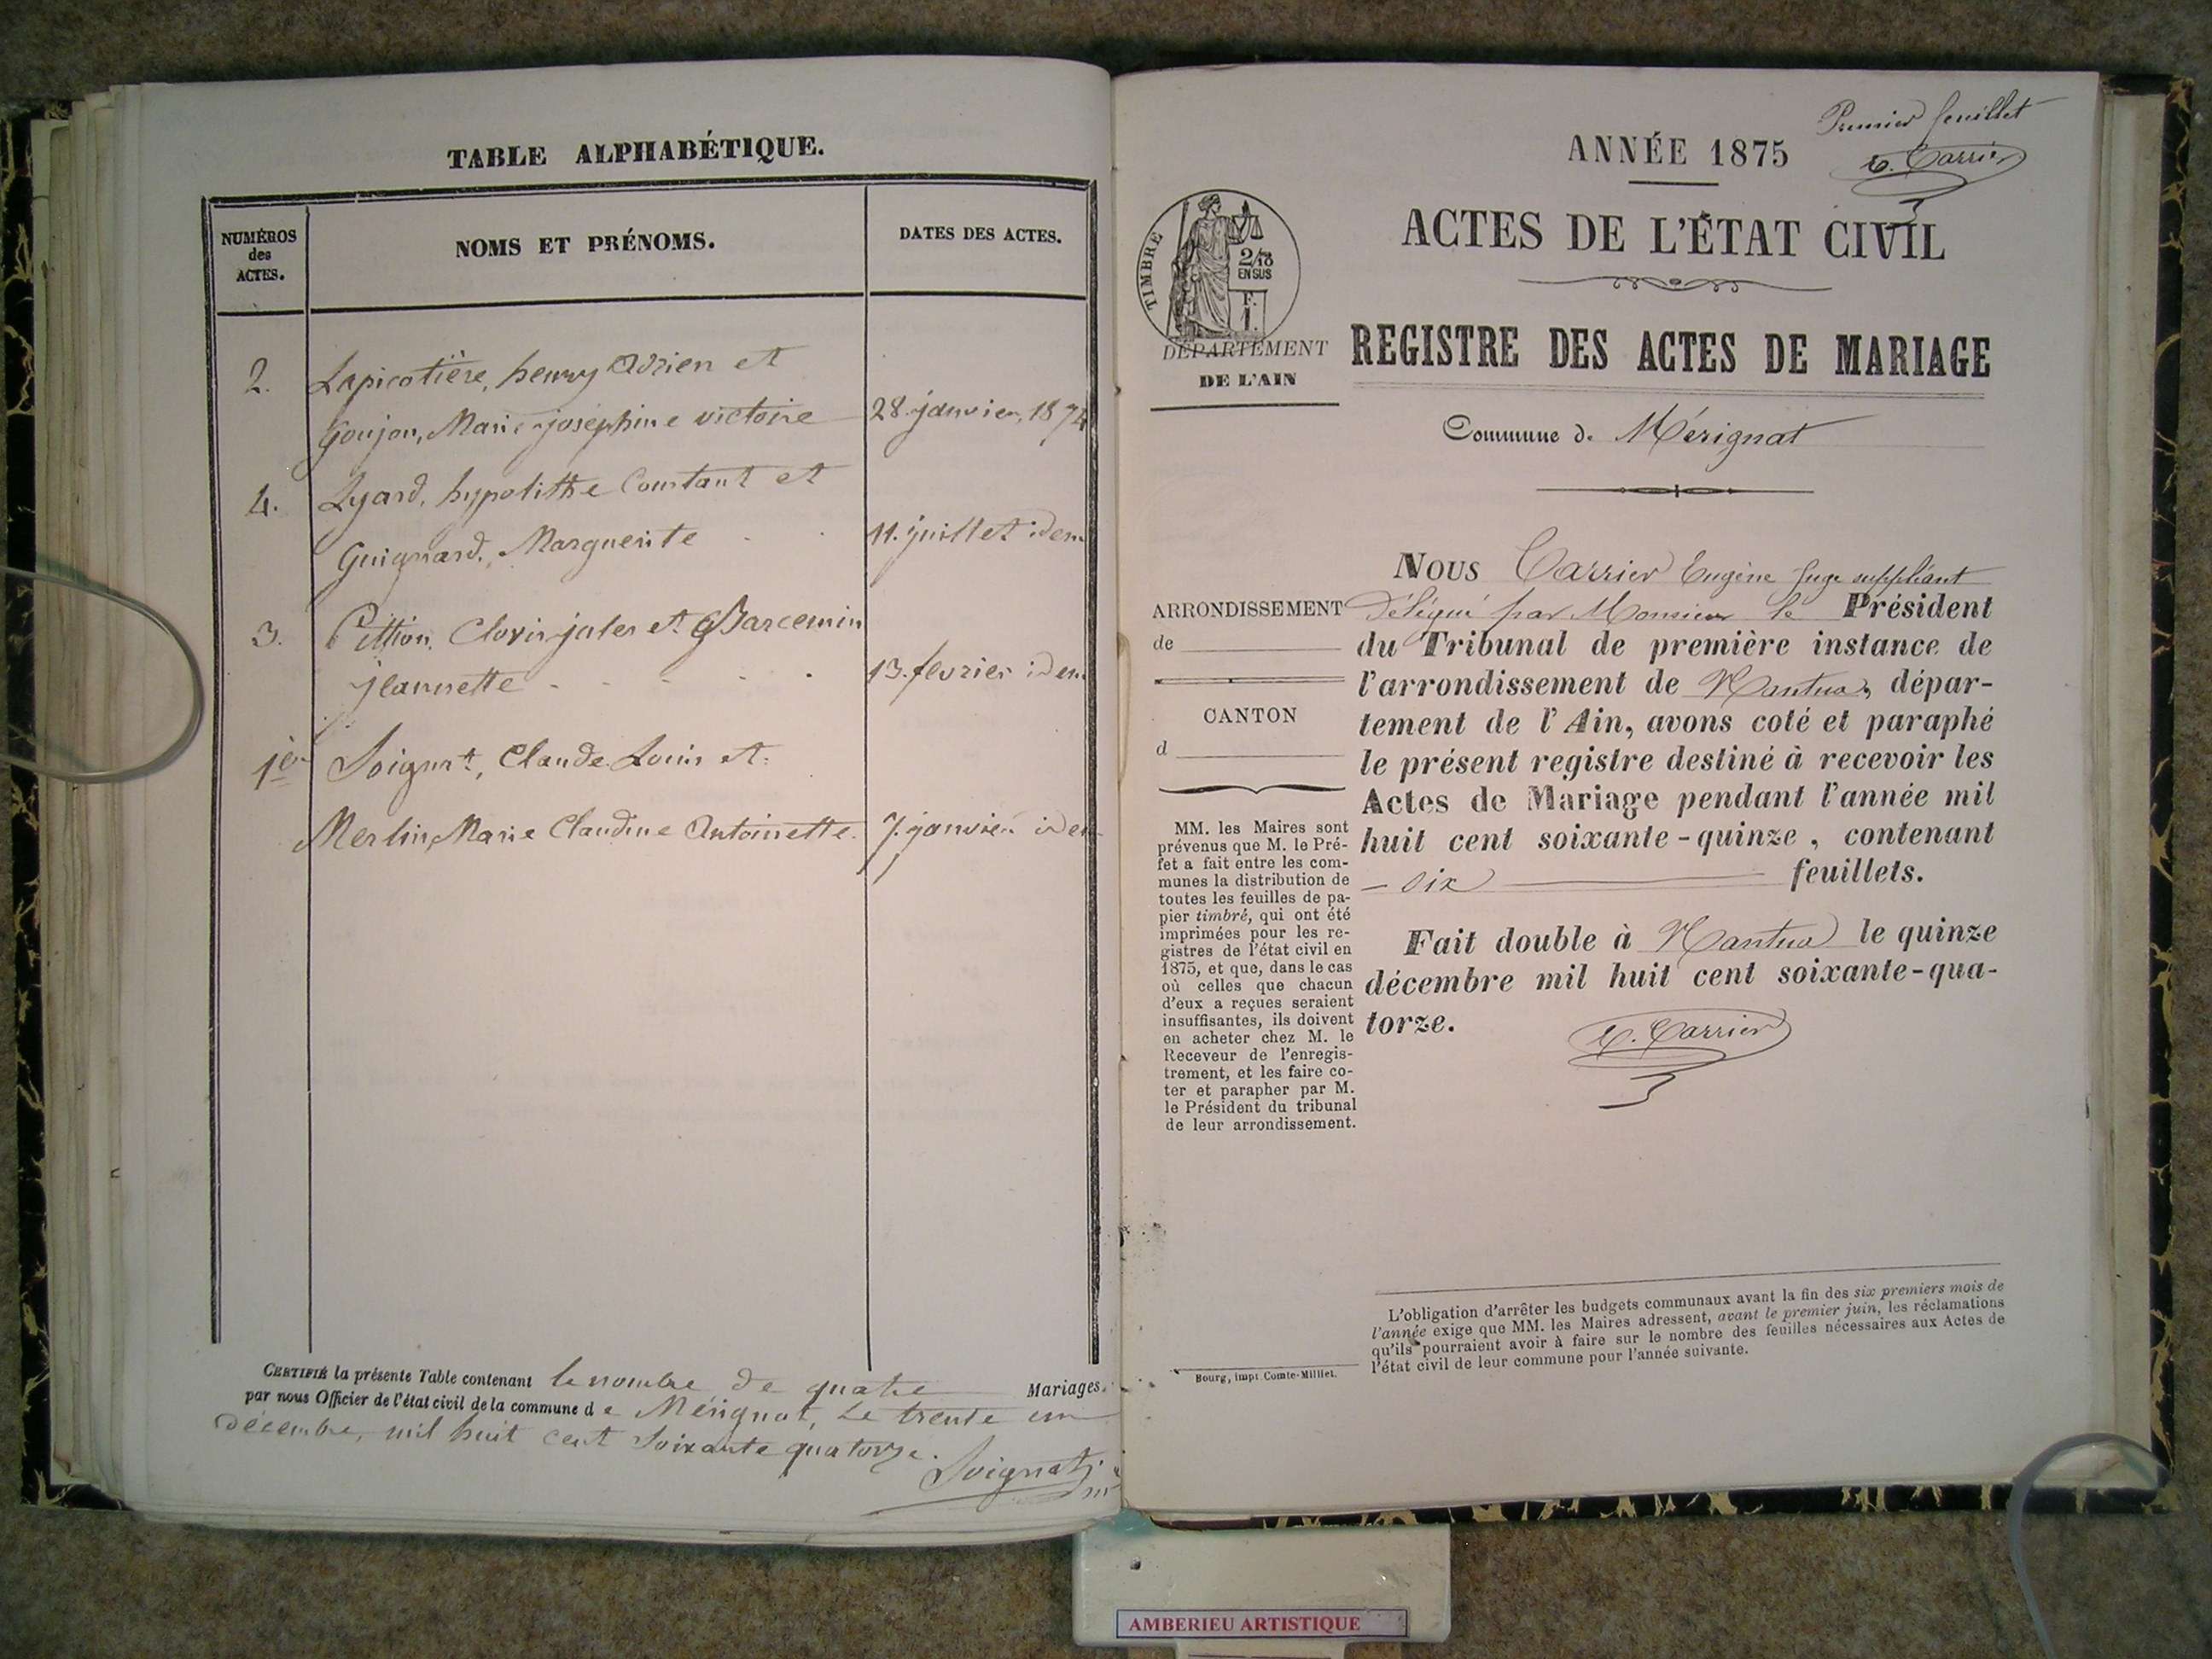 TABLE ALPHABÉTIQUE.
NUMÉROS
des
ACTES.
NOMS ET PRÉNOMS.
DATES DES ACTES.
2. Lapicotière, henry Adrien et
Goujon, Marie josephine victoire 28 janvier, 1874
4. Lyard, hypolithe Constant et
Guignard, Marguerite 11. juillet idem
3. Pittion, Clovis jules et Barcemin
jeannette 13. fevrier idem
1er Soignat, Claude Louis et
Merlin, Marie Claudine Antoinette. 7. janvier idem
CERTIFIÉ la présente Table contenant le nombre de quatre Mariages.
par nous Officier de l'état civil de la commune de Mérignat, Le trente un
décembre, mil huit cent soixante quatorze.
Soignat
Premier feuillet
E. Carrier
ANNÉE 1875
ACTES DE L'ÉTAT CIVIL
TIMBRE
2/10
EN SUS
F.
1.
DÉPARTEMENT
DE L'AIN
REGISTRE DES ACTES DE MARIAGE
Commune de Mérignat
ARRONDISSEMENT
de
CANTON
d
MM. les Maires sont
prévenus que M. le Pré-
fet a fait entre les com-
munes la distribution de
toutes les feuilles de pa-
pier timbré, qui ont été
imprimées pour les re-
gistres de l'état civil en
1875, et que, dans le cas
où celles que chacun
d'eux a reçues seraient
insuffisantes, ils doivent
en acheter chez M. le
Receveur de l'enregis-
trement, et les faire co-
ter et parapher par M.
le Président du tribunal
de leur arrondissement.
NOUS Carrier Eugène Juge suppléant
Délégué par Monsieur le Président
du Tribunal de première instance de
l'arrondissement de Nantua, dépar-
tement de l'Ain, avons coté et paraphé
le présent registre destiné à recevoir les
Actes de Mariage pendant l'année mil
huit cent soixante-quinze, contenant
six feuillets.
Fait double à Nantua le quinze
décembre mil huit cent soixante-qua-
torze.
E. Carrier
L'obligation d'arrêter les budgets communaux avant la fin des six premiers mois de
l'année exige que MM. les Maires adressent, avant le premier juin, les réclamations
qu'ils pourraient avoir à faire sur le nombre des feuilles nécessaires aux Actes de
l'état civil de leur commune pour l'année suivante.
Bourg, impr. Comte-Milliet.
AMBERIEU ARTISTIQUE